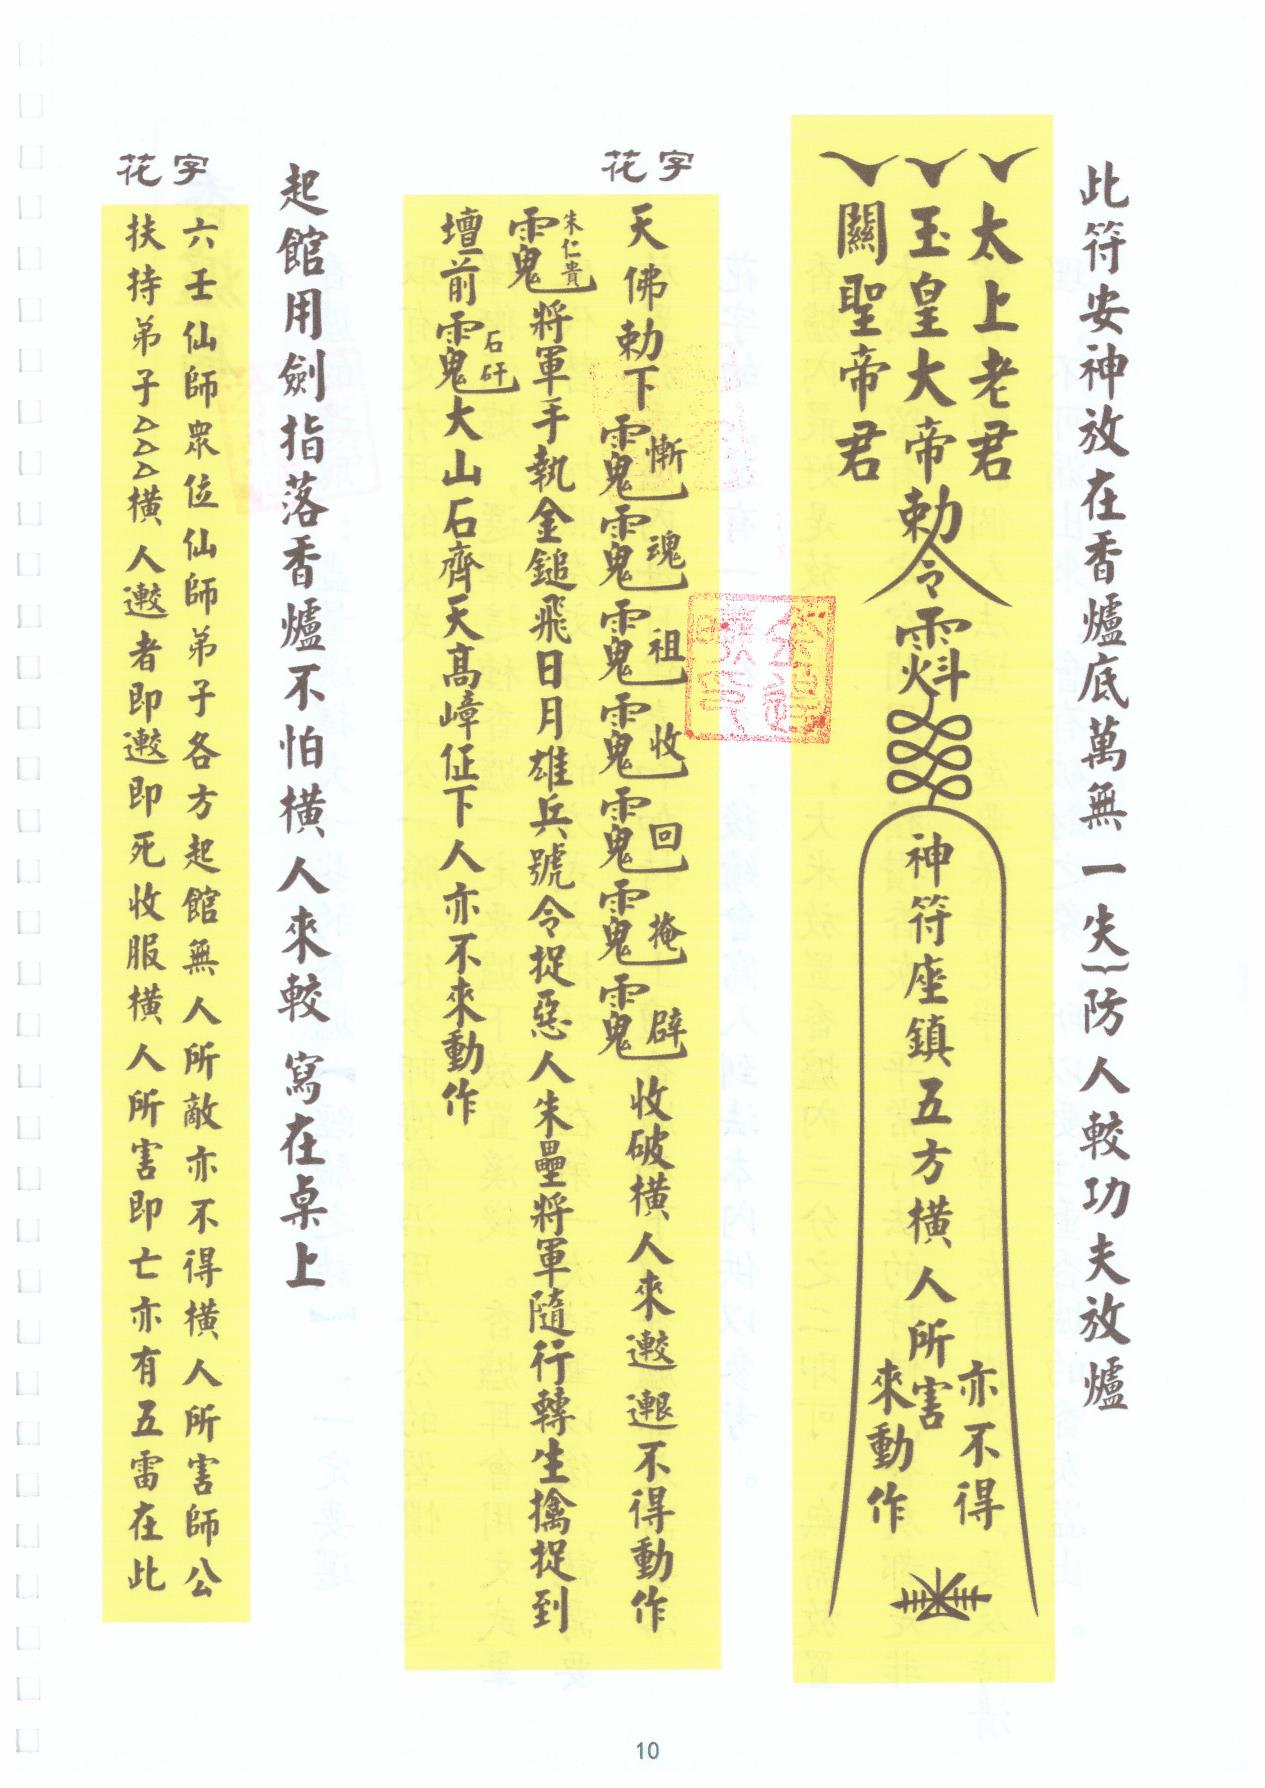 此符安神放在香爐底萬無一失｛防人較功夫放爐
太上老君
玉皇大帝
關聖帝君
勅令
神符座鎮五方橫人所害
亦不得
來動作
花字
天佛勅下
慚
魂
祖
收
回
掩
辟
收破橫人來
不得動作
朱仁貴
將軍手執金鎚飛日月雄兵號令捉惡人朱壘將軍隨行轉生擒捉到
壇前
石矸
大山石齊天高嶂征下人亦不來動作
起館用劍指落香爐不怕橫人來較 寫在桌上
花字
六壬仙師眾位仙師弟子各方起館無人所敵亦不得橫人所害師公
扶持弟子△△△橫人
者即
即死收服橫人所害即亡亦有五雷在此
10